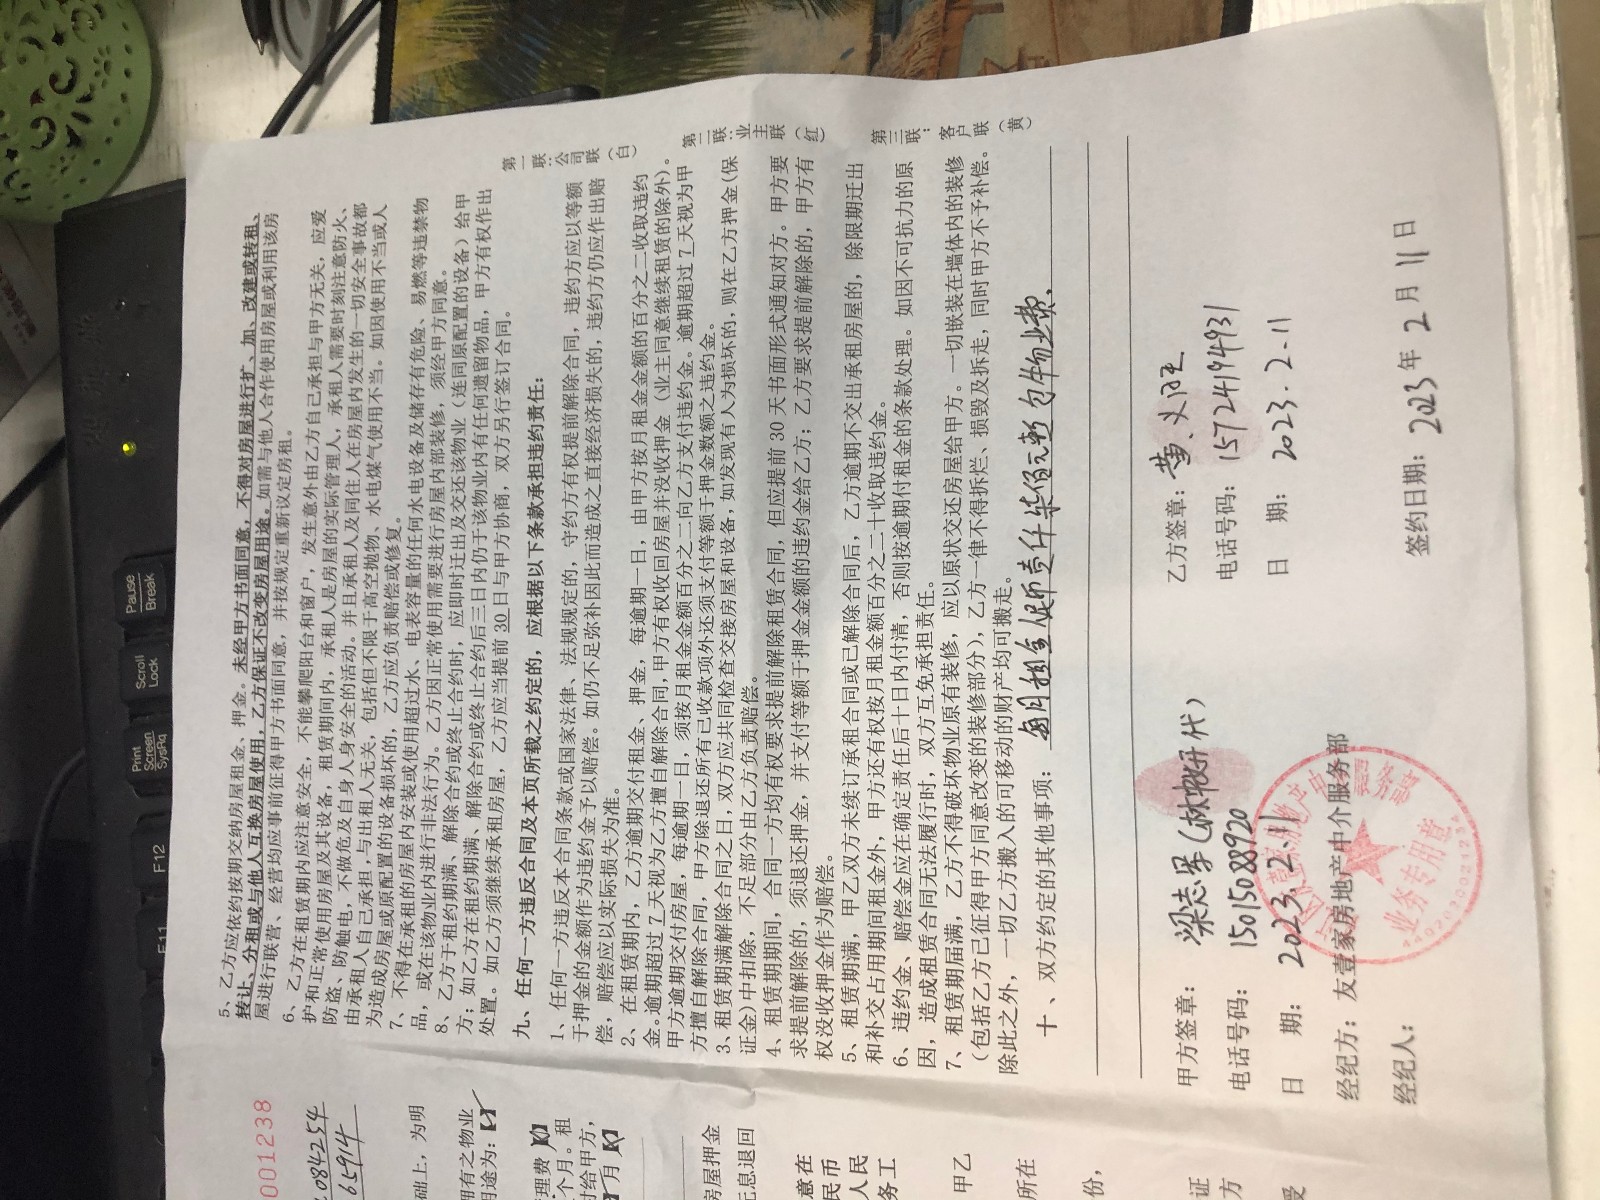 5、乙方应依约按期交纳房屋租金、押金。未经甲方书面同意，不得对房屋进行扩、加、改建或转租、
转让、分租或与他人互换房屋使用，乙方保证不改变房屋用途。如需与他人合作使用房屋或利用该房
屋进行联营、经营均应事前征得甲方书面同意，并按规定重新议定房租。
6、乙方在租赁期内应注意安全，不能攀爬阳台和窗户，发生意外由乙方自己承担与甲方无关，应爱
护和正常使用房屋及其设备，租赁期间内，承租人是房屋的实际管理人，承租人需要时刻注意防火、
防盗、防触电，不做危及自身人身安全的活动。并且承租人及同住人在房屋内发生的一切安全事故都
由承租人自己承担，与出租人无关，包括但不限于高空抛物、水电煤气使用不当。如因使用不当或人
为造成房屋或原配置的设备损坏的，乙方应负责赔偿或修复。
7、不得在承租的房屋内安装或使用超过水、电表容量的任何水电设备及储存有危险、易燃等违禁物
品，或在该物业内进行非法行为。乙方因正常使用需要进行房屋内部装修，须经甲方同意。
8、乙方于租约期满、解除合约或终止合约时，应即时迁出及交还该物业（连同原配置的设备）给甲
方；如乙方在租约期满、解除合约或终止合约后三日内仍于该物业内有任何遗留物品，甲方有权作出
处置。如乙方须继续承租房屋，乙方应当提前30日与甲方协商，双方另行签订合同。
九、任何一方违反合同及本页所载之约定的，应根据以下条款承担违约责任：
1、任何一方违反本合同条款或国家法律、法规规定的，守约方有权提前解除合同，违约方应以等额
于押金的金额作为违约金予以赔偿。如仍不足弥补因此而造成之直接经济损失的，违约方仍应作出赔
偿，赔偿应以实际损失为准。
2、在租赁期内，乙方逾期交付租金、押金，每逾期一日，由甲方按月租金金额的百分之二收取违约
金。逾期超过7天视为乙方擅自解除合同，甲方有权收回房屋并没收押金（业主同意继续租赁的除外）。
甲方逾期交付房屋，每逾期一日，须按月租金金额百分之二向乙方支付违约金。逾期超过7天视为甲
方擅自解除合同，甲方除退还所有已收款项外还须支付等额于押金数额之违约金。
3、租赁期满解除合同之日，双方应共同检查交接房屋和设备，如发现有人为损坏的，则在乙方押金（保
证金）中扣除，不足部分由乙方负责赔偿。
4、租赁期期间，合同一方均有权要求提前解除租赁合同，但应提前30天书面形式通知对方。甲方要
求提前解除的，须退还押金，并支付等额于押金金额的违约金给乙方；乙方要求提前解除的，甲方有
权没收押金作为赔偿。
5、租赁期满，甲乙双方未续订承租合同或已解除合同后，乙方逾期不交出承租房屋的，除限期迁出
和补交占用期间租金外，甲方还有权按月租金额百分之二十收取违约金。
6、违约金、赔偿金应在确定责任后十日内付清，否则按逾期付租金的条款处理。如因不可抗力的原
因，造成租赁合同无法履行时，双方互免承担责任。
7、租赁期届满，乙方不得破坏物业原有装修，应以原状交还房屋给甲方。一切嵌装在墙体内的装修
（包括乙方已征得甲方同意改变的装修部分），乙方一律不得拆烂、损毁及拆走，同时甲方不予补偿。
除此之外，一切乙方搬入的可移动的财产均可搬走。
十、双方约定的其他事项：每月租金人民币壹仟柒佰元
甲方签章：梁志军
乙方签章：黄
电话号码：15015088920
电话号码：15724194931
日 期：2023.2.11
日 期：2023.2.11
经纪方：友壹家房地产中介服务部
经纪人：
签约日期：2023年2月11日
第一联：公司联（白）
第二联：业主联（红）
第三联：客户联（黄）
业务专用章
4402030021232
001238
2084254
65914
础上，为明
拥有之物业
用途为：
理费
个月。租
付给甲方，
月
房屋押金
无息退回
意在
民币
人民
务工
甲乙
所在
份，
证
方
受
Print
Screen
SysRq
Scroll
Lock
Pause
Break
F11
F12